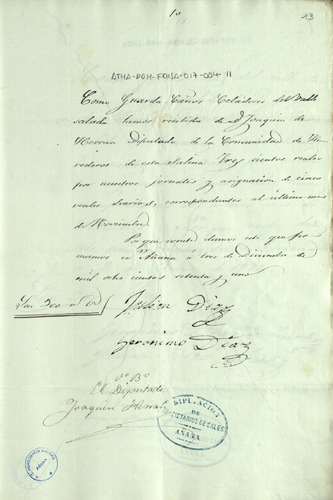 10
13
ATHA-DAH-FDHSA-017-004-11
Como Guarda Caños Celadores del Valle
salado hemos recibido de D. Joaquin de
Herran Diputado de la Comunidad de He-
rederos de esta salina Tres cientos reales
por nuestros jornales y asignacion de cinco
reales diarios, correspondientes al último mes
de Noviembre.
Para que conste damos este que fir-
mamos en Añana a tres de Diciembre de
mil ocho cientos setenta y uno
Son 300 rs vn
Julian Diaz
Geronimo Diaz
Vº Bº
El Diputado
Joaquin Herran
DIPUTACION
DE
PROPIETARIOS DE SALES
AÑANA